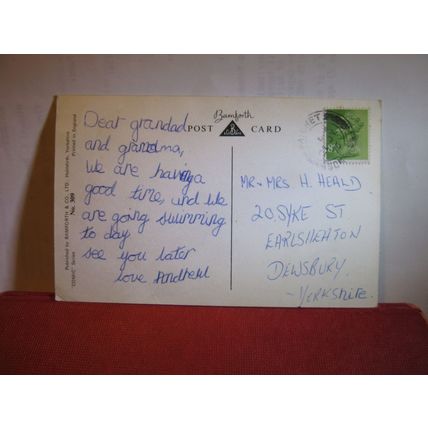 Bamforth
POST CARD
Dear grandad
and grandma,
we are having a
good time, and we
are going swimming
to day
see you later
love
MR & MRS H. HEALD
20, SYKE ST
EARLSHEATON
DEWSBURY.
YORKSHIRE.
Published by BAMFORTH & CO. LTD. Holmfirth, Yorkshire
"COMIC" Series No. 309 Printed in England